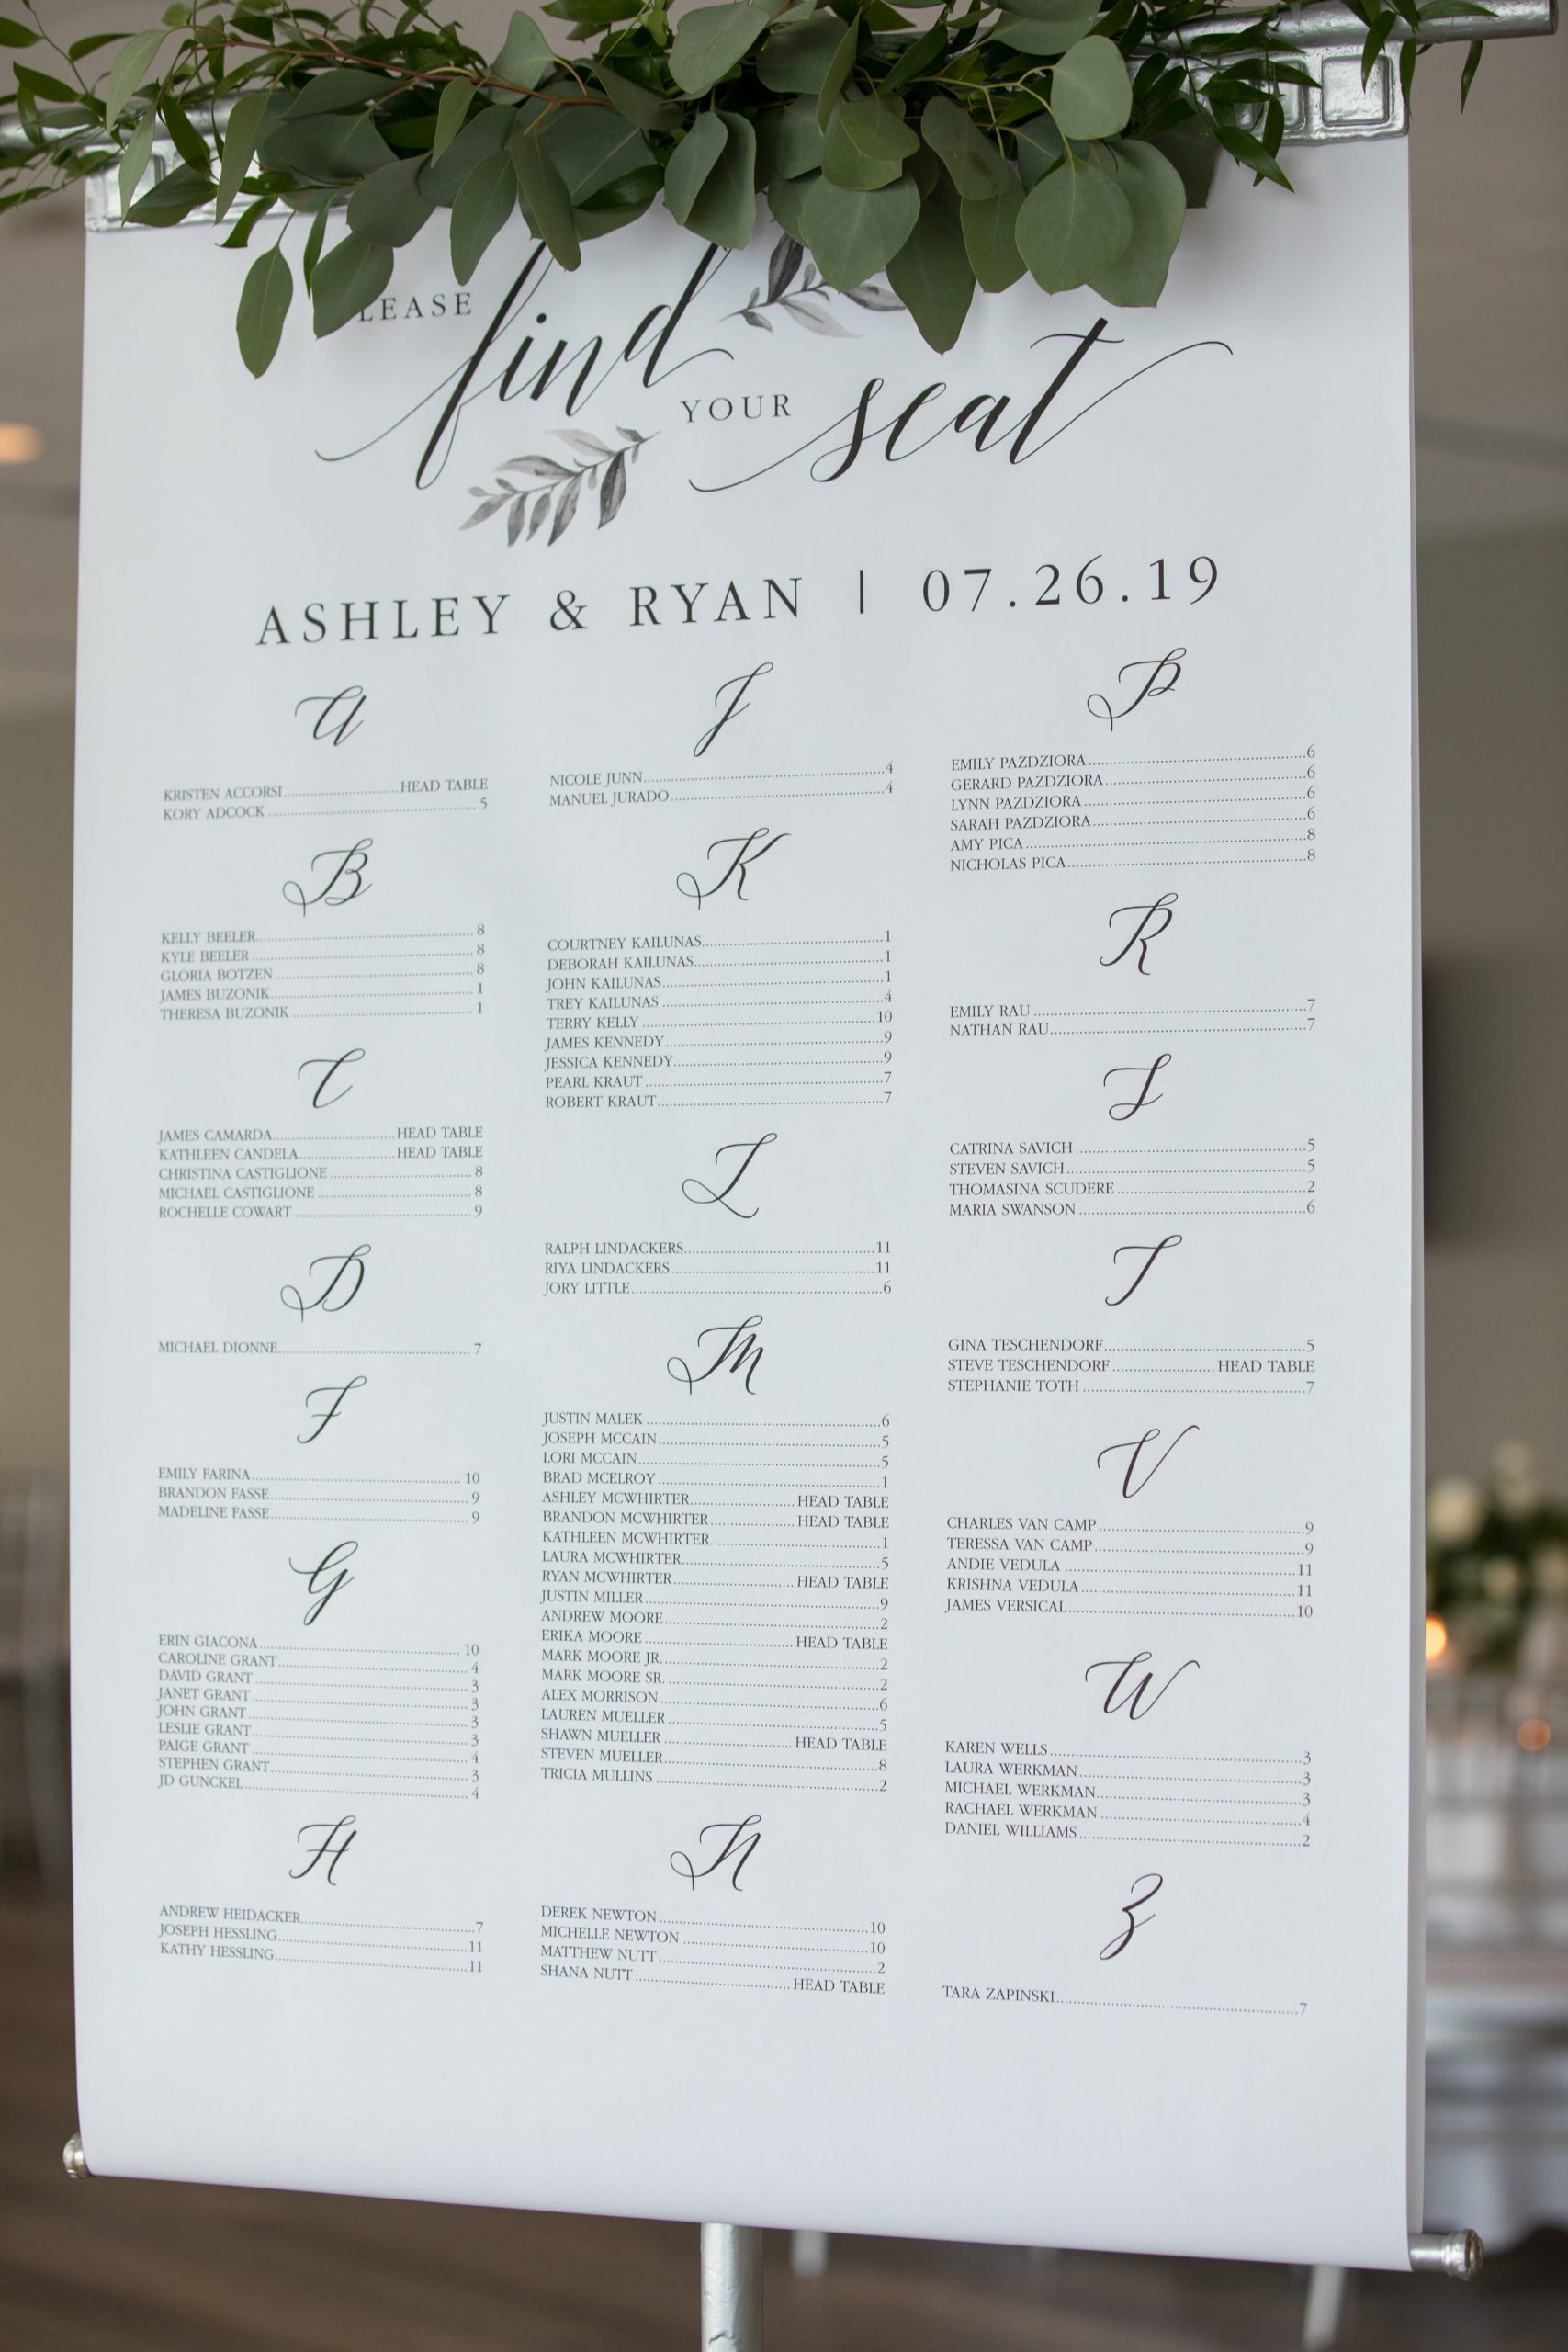 find
YOUR seat
ASHLEY & RYAN | 07.26.19
A
KRISTEN ACCORSI HEAD TABLE
KORY ADCOCK 5
B
KELLY BEELER 8
KYLE BEELER 8
GLORIA BOTZEN 8
JAMES BUZONIK 1
THERESA BUZONIK 1
C
JAMES CAMARDA HEAD TABLE
KATHLEEN CANDELA HEAD TABLE
CHRISTINA CASTIGLIONE 8
MICHAEL CASTIGLIONE 8
ROCHELLE COWART 9
D
MICHAEL DIONNE 7
F
EMILY FARINA 10
BRANDON FASSE 9
MADELINE FASSE 9
G
ERIN GIACONA 10
CAROLINE GRANT 4
DAVID GRANT 3
JANET GRANT 3
JOHN GRANT 3
LESLIE GRANT 3
PAIGE GRANT 4
STEPHEN GRANT 3
JD GUNCKEL 4
H
ANDREW HEIDACKER 7
JOSEPH HESSLING 11
KATHY HESSLING 11
J
NICOLE JUNN 4
MANUEL JURADO 4
K
COURTNEY KAILUNAS 1
DEBORAH KAILUNAS 1
JOHN KAILUNAS 1
TREY KAILUNAS 4
TERRY KELLY 10
JAMES KENNEDY 9
JESSICA KENNEDY 9
PEARL KRAUT 7
ROBERT KRAUT 7
L
RALPH LINDACKERS 11
RIYA LINDACKERS 11
JORY LITTLE 6
M
JUSTIN MALEK 6
JOSEPH MCCAIN 5
LORI MCCAIN 5
BRAD MCELROY 1
ASHLEY MCWHIRTER HEAD TABLE
BRANDON MCWHIRTER HEAD TABLE
KATHLEEN MCWHIRTER 1
LAURA MCWHIRTER 5
RYAN MCWHIRTER HEAD TABLE
JUSTIN MILLER 9
ANDREW MOORE 2
ERIKA MOORE HEAD TABLE
MARK MOORE JR. 2
MARK MOORE SR. 2
ALEX MORRISON 6
LAUREN MUELLER 5
SHAWN MUELLER HEAD TABLE
STEVEN MUELLER 8
TRICIA MULLINS 2
N
DEREK NEWTON 10
MICHELLE NEWTON 10
MATTHEW NUTT 2
SHANA NUTT HEAD TABLE
P
EMILY PAZDZIORA 6
GERARD PAZDZIORA 6
LYNN PAZDZIORA 6
SARAH PAZDZIORA 6
AMY PICA 8
NICHOLAS PICA 8
R
EMILY RAU 7
NATHAN RAU 7
S
CATRINA SAVICH 5
STEVEN SAVICH 5
THOMASINA SCUDERE 2
MARIA SWANSON 6
T
GINA TESCHENDORF 5
STEVE TESCHENDORF HEAD TABLE
STEPHANIE TOTH 7
V
CHARLES VAN CAMP 9
TERESSA VAN CAMP 9
ANDIE VEDULA 11
KRISHNA VEDULA 11
JAMES VERSICAL 10
W
KAREN WELLS 3
LAURA WERKMAN 3
MICHAEL WERKMAN 3
RACHAEL WERKMAN 4
DANIEL WILLIAMS 2
Z
TARA ZAPINSKI 7